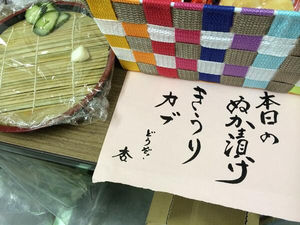 本日の
ぬか漬け
きうり
カブ
どうぞ